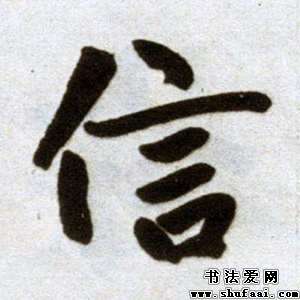 信
书法爱网
www.shufaai.com